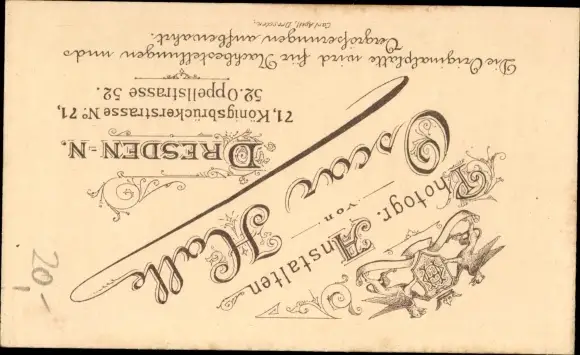 Photogr. Anstalten
von
Oscar Halle
DRESDEN=N.
71, Königsbrückerstrasse No 71,
52. Oppellstrasse 52.
Die Originalplatte wird für Nachbestellungen und
Vergrößerungen aufbewahrt.
20,-